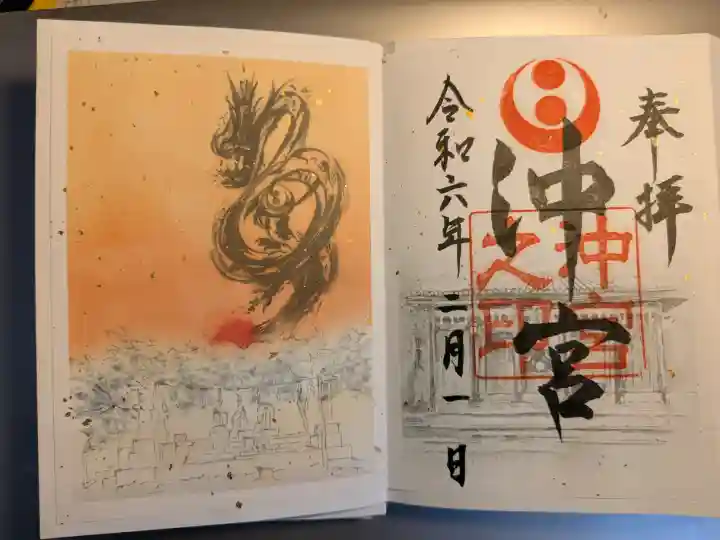 奉拝
沖宮
沖宮之印
令和六年二月一日